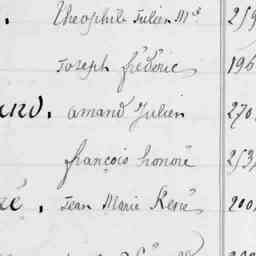 Théophile Julien Mie 259
Joseph fréderic 196
amand Julien 270
françois honoré 253
Jean Marie René 200